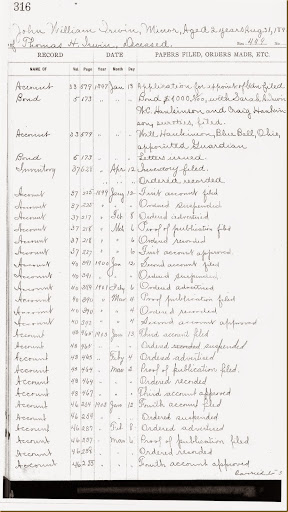 316
John William Irwin, Minor, Aged 2 years Aug 31, 189
of Thomas H. Irwin, Deceased. No. 489
RECORD DATE PAPERS FILED, ORDERS MADE, ETC.
NAME OF Vol. Page Year Month Day
Account 33 579 1897 Jan 19 Application for appoint of Gdn filed
Bond 5 173 " " " Bond $4000.00, with Sarah Irwin
W.C. Hankinson and Craig Hankin
son, sureties, filed.
Account 33 579 " " " Will Hankinson, Blue Bell, Ohio,
appointed Guardian
Bond 5 173 " " " Letters issued
Inventory 37 625 " Apr 12 Inventory filed.
" " " " " " Ordered recorded
Account 37 1899 Jany 13 First account filed
Account 37 " " " Ordered suspended
Account 37 217 " Feb 8 Ordered advertised
Account 37 218 " Mch 6 Proof of publication filed
Account 37 218 " " 6 Ordered recorded
Account 37 " " 6 First account approved
Account 40 1900 Jan 12 Second account filed
Account 40 " " " Ordered suspended
Account 40 1901 Feby 6 Ordered advertised
Account 40 390 " Mar 4 Proof of publication filed
Account 40 390 " " 4 Ordered recorded
Account 40 " " 4 Second account approved
Account 43 1903 Jan 12 Third account filed
Account 43 " " " Ordered suspended
Account 43 463 " Feby 4 Ordered advertised
Account 43 464 " Mar 2 Proof of publication filed.
Account 43 464 " " " Ordered recorded
Account 43 467 " " " Third account approved
Account 46 234 Jan 12 Fourth account filed
Account 46 234 " " " Ordered suspended
Account 46 237 " Feb 8 Ordered advertised
Account 46 237 " Mar 6 Proof of publication filed
Account 46 238 " " " Ordered recorded
Account 46 238 " " " Fourth account approved
Carried to